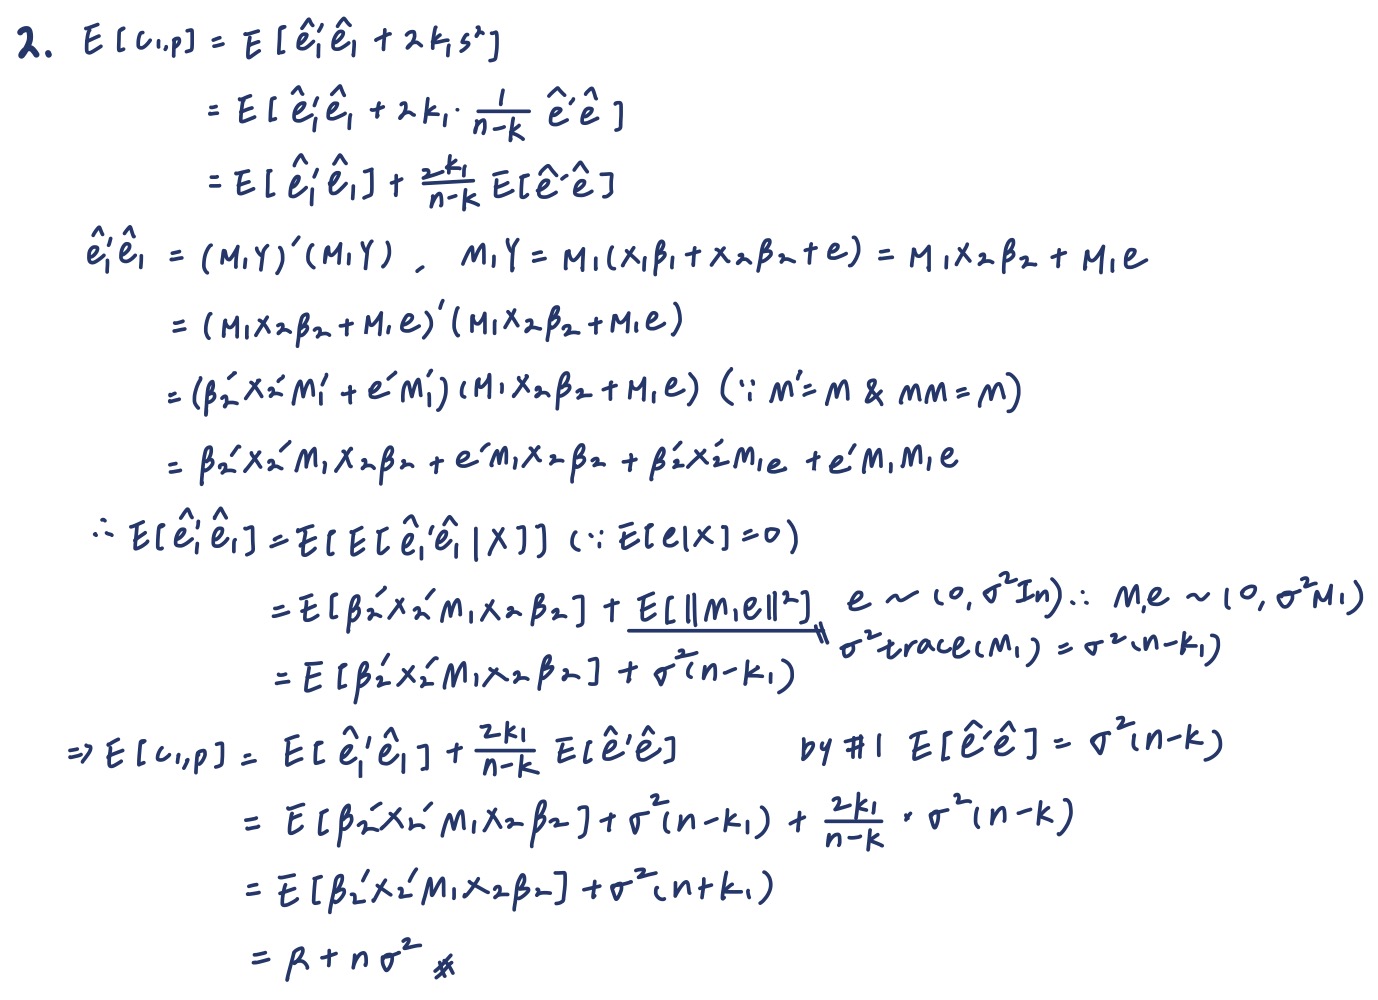 2. E[C₁,p] = E[ê₁'ê₁ + 2k₁s²]
= E[ê₁'ê₁ + 2k₁ · 1/(n-k) ê'ê]
= E[ê₁'ê₁] + 2k₁/(n-k) E[ê'ê]
ê₁'ê₁ = (M₁Y)'(M₁Y) , M₁Y = M₁(X₁β₁ + X₂β₂ + e) = M₁X₂β₂ + M₁e
= (M₁X₂β₂ + M₁e)'(M₁X₂β₂ + M₁e)
= (β₂'X₂'M₁' + e'M₁')(M₁X₂β₂ + M₁e) (∵ M' = M & MM = M)
= β₂'X₂'M₁X₂β₂ + e'M₁X₂β₂ + β₂'X₂'M₁e + e'M₁M₁e
∴ E[ê₁'ê₁] = E[E[ê₁'ê₁|X]] (∵ E[e|X] = 0)
= E[β₂'X₂'M₁X₂β₂] + E[‖M₁e‖²] e ~ (0, σ²In) ∴ M₁e ~ (0, σ²M₁)
σ²trace(M₁) = σ²(n-k₁)
= E[β₂'X₂'M₁X₂β₂] + σ²(n-k₁)
⇒ E[C₁,p] = E[ê₁'ê₁] + 2k₁/(n-k) E[ê'ê] by #1 E[ê'ê] = σ²(n-k)
= E[β₂'X₂'M₁X₂β₂] + σ²(n-k₁) + 2k₁/(n-k) · σ²(n-k)
= E[β₂'X₂'M₁X₂β₂] + σ²(n+k₁)
= R + nσ² #